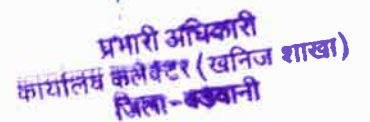 प्रभारी अधिकारी
कार्यालय कलेक्टर (खनिज शाखा)
जिला-बडवानी